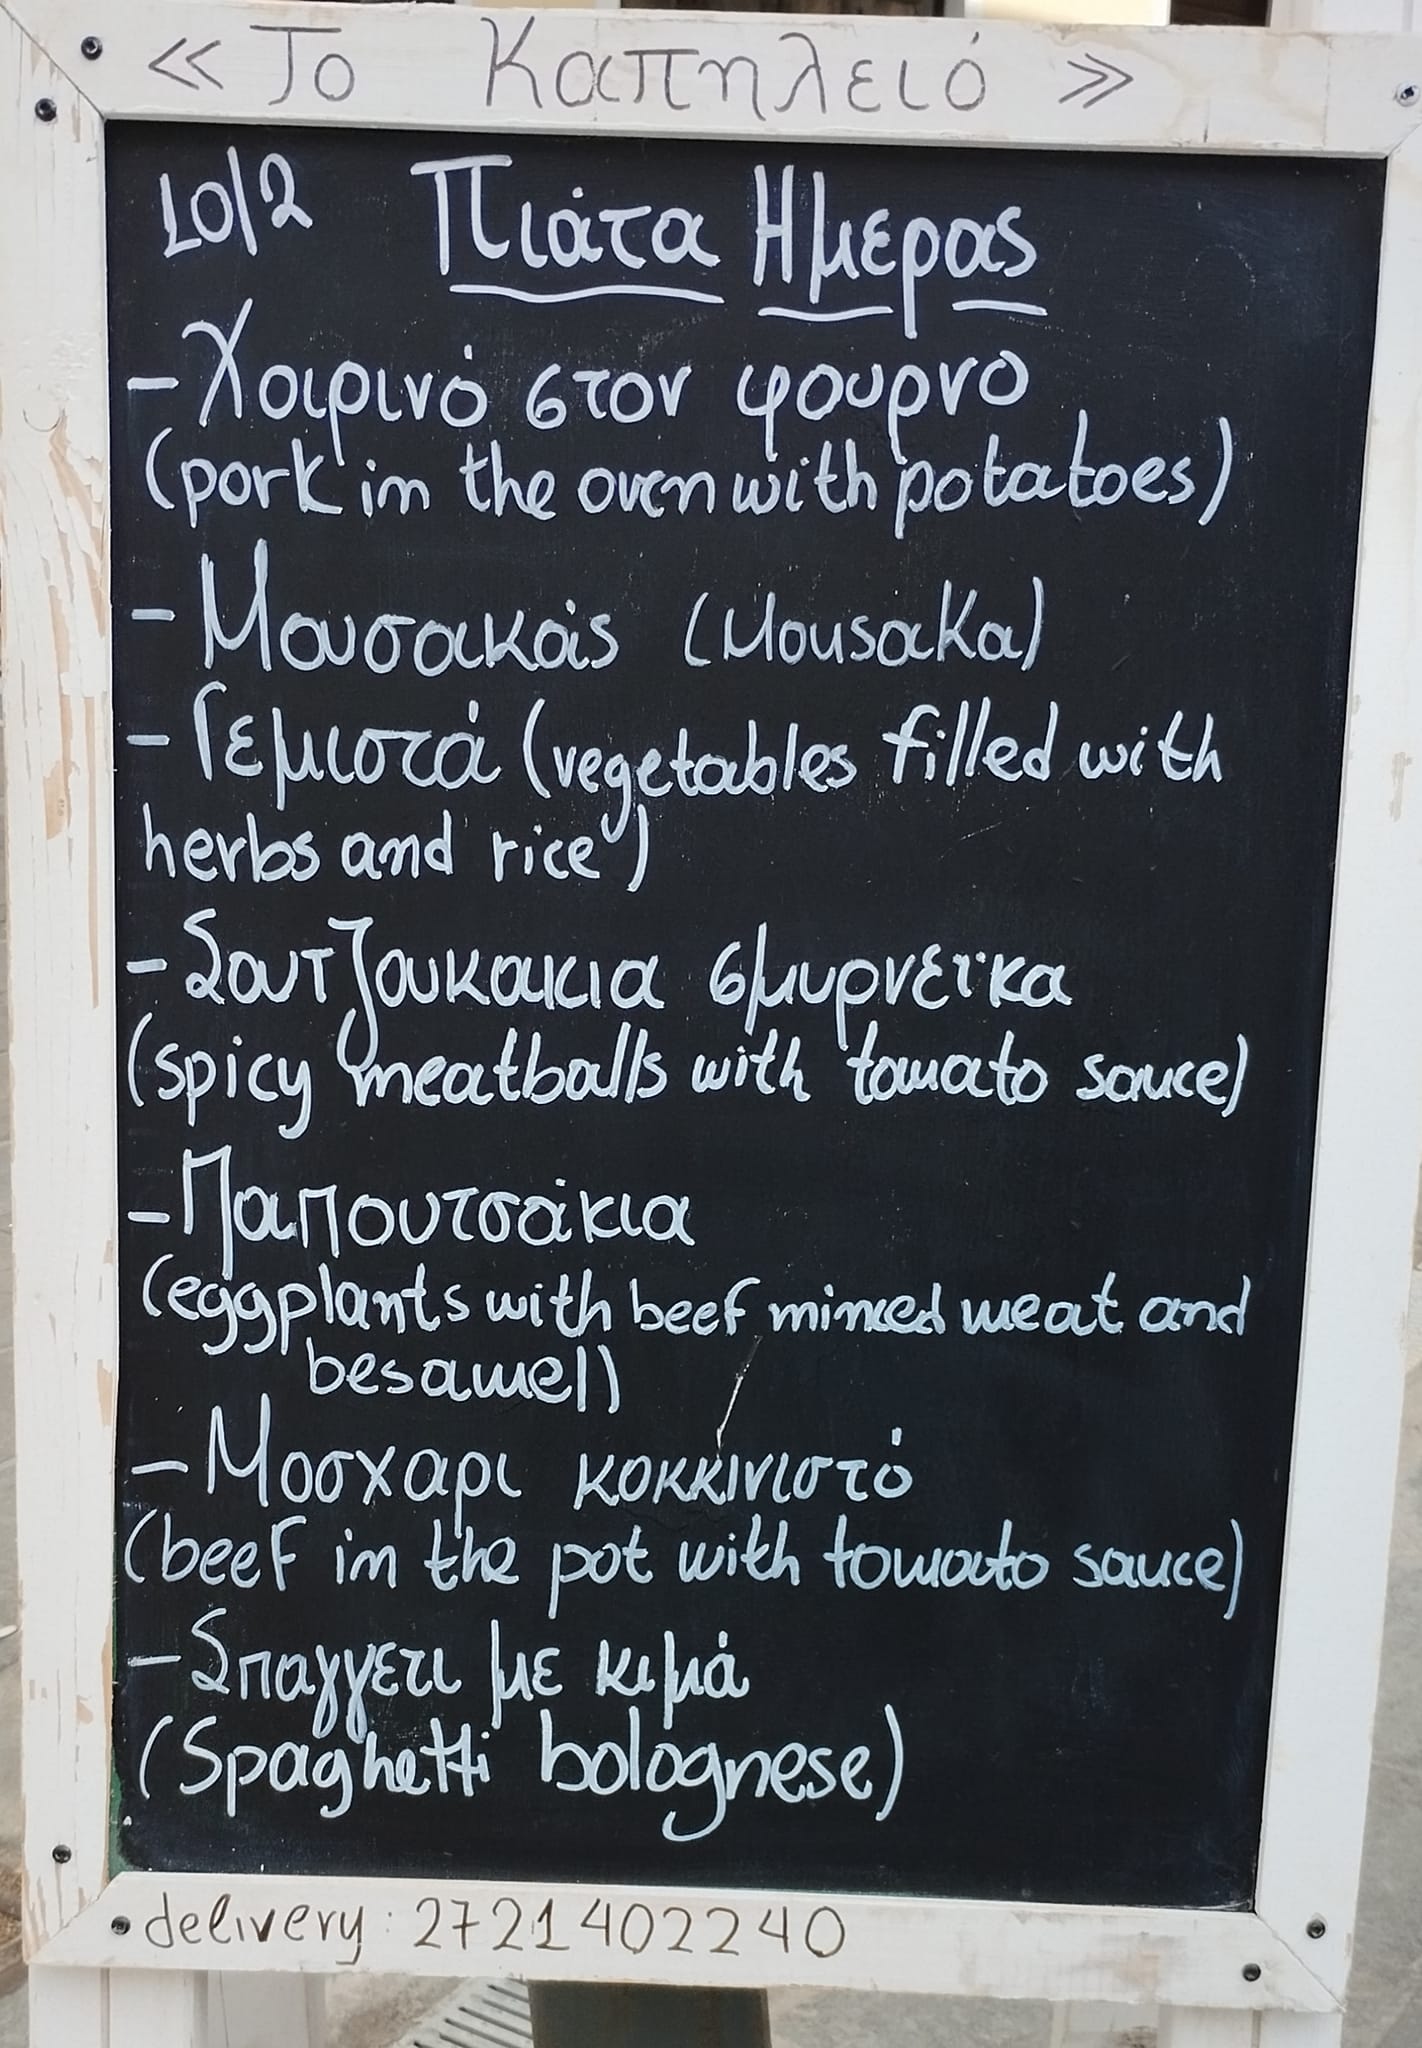 «Το Καπηλειό»
10/2 Πιάτα Ημερας
- Χοιρινό στον φουρνο
(pork in the oven with potatoes)
- Μουσακάς (Mousaka)
- Γεμιστά (vegetables filled with
herbs and rice)
- Σουτζουκακια σμυρνεϊκα
(spicy meatballs with tomato sauce)
- Παπουτσάκια
(eggplants with beef minced meat and
besamel)
- Μοσχαρι κοκκινιστό
(beef in the pot with tomato sauce)
- Σπαγγετι με κιμά
(Spaghetti bolognese)
delivery: 2721402240